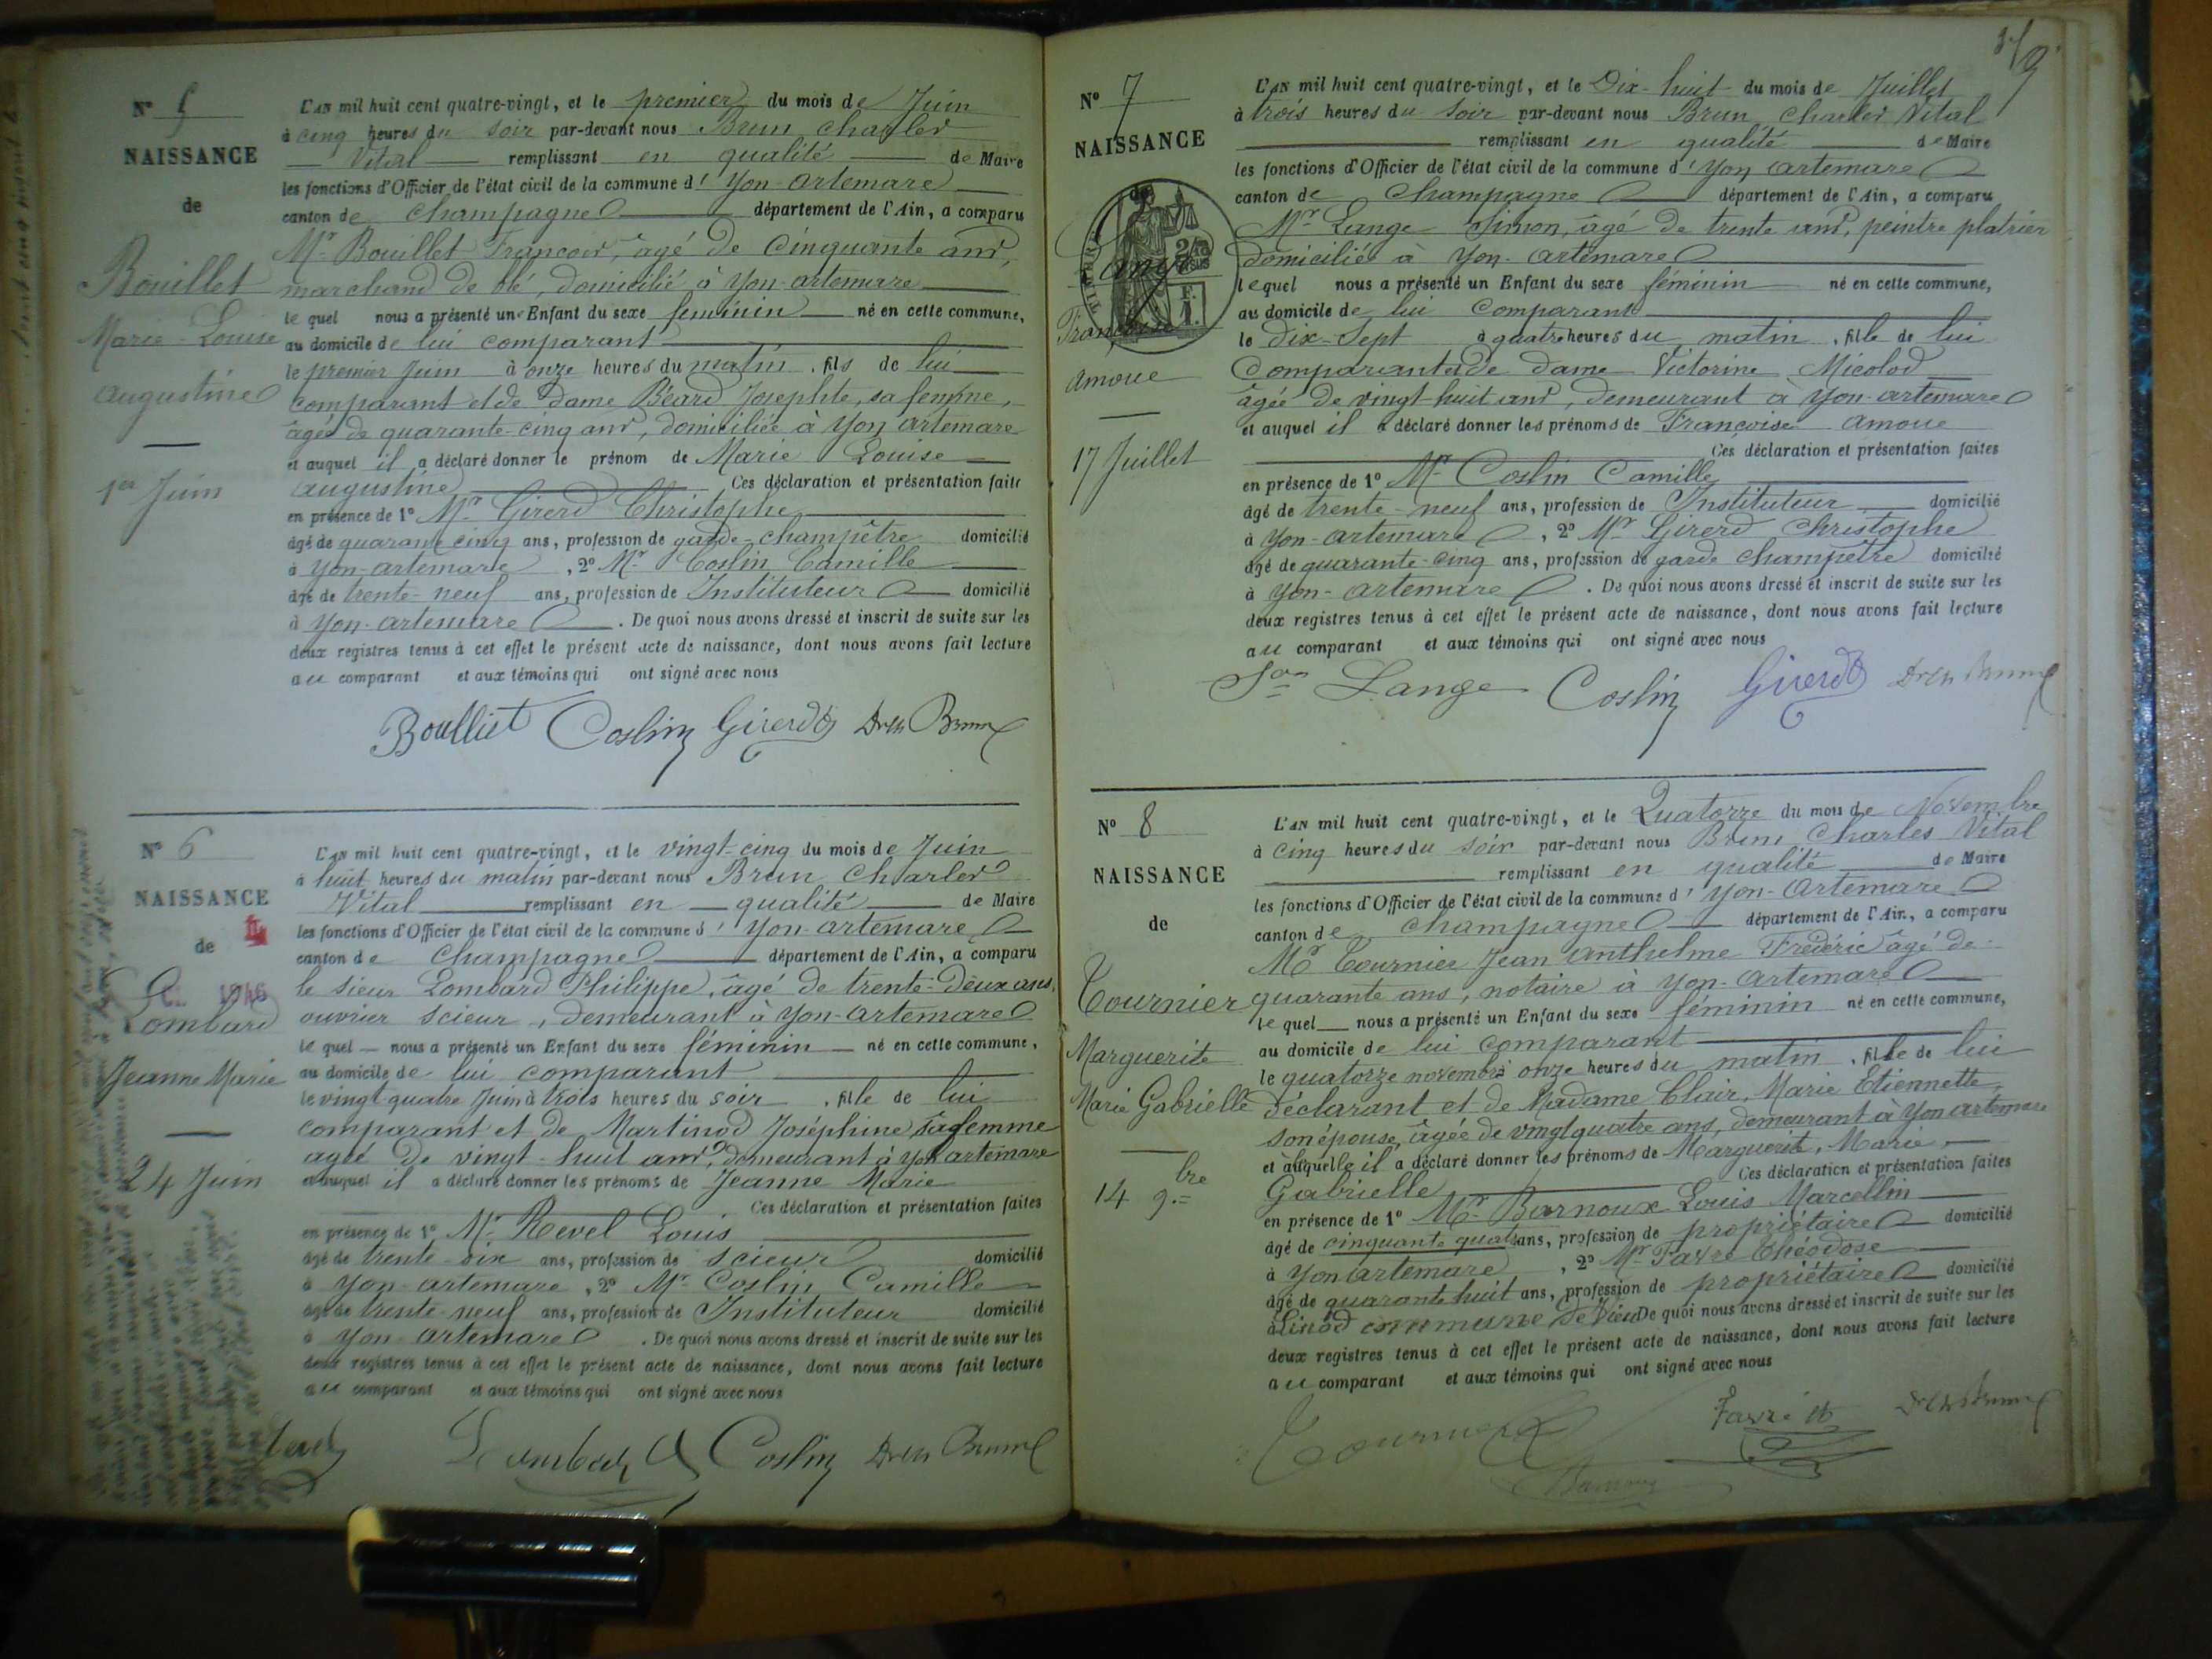 N° 5
NAISSANCE
de
Bouillet
Marie-Louise
Augustine
1er Juin
L'AN mil huit cent quatre-vingt, et le premier du mois de Juin
à cinq heures du soir par-devant nous Brun Charles
Vital remplissant en qualité de Maire
les fonctions d'Officier de l'état civil de la commune d' Yon-artemare
canton de Champagne département de l'Ain, a comparu
Mr Bouillet François, âgé de Cinquante ans,
marchand de blé, domicilié à Yon-artemare
le quel nous a présenté un Enfant du sexe féminin né en cette commune,
au domicile de lui comparant
le premier Juin à onze heures du matin, fils de lui
comparant et de Dame Béard Josephte, sa femme,
âgée de quarante-cinq ans, domiciliée à Yon artemare
et auquel il a déclaré donner le prénom de Marie Louise
augustine Ces déclaration et présentation faites
en présence de 1° Mr Girerd Christophe
âgé de quarante cinq ans, profession de garde-champêtre domicilié
à Yon-artemare, 2° Mr Coslin Camille
âgé de trente-neuf ans, profession de Instituteur domicilié
à Yon-artemare. De quoi nous avons dressé et inscrit de suite sur les
deux registres tenus à cet effet le présent acte de naissance, dont nous avons fait lecture
au comparant et aux témoins qui ont signé avec nous
Boulliet Coslin Girerd Dr Ch Brun
N° 6
NAISSANCE
de
1946
Lombard
Jeanne Marie
24 Juin
L'AN mil huit cent quatre-vingt, et le vingt-cinq du mois de Juin
à huit heures du matin par-devant nous Brun Charles
Vital remplissant en qualité de Maire
les fonctions d'Officier de l'état civil de la commune d' Yon-artemare
canton de Champagne département de l'Ain, a comparu
le sieur Lombard Philippe, âgé de trente-deux ans,
ouvrier scieur, demeurant à Yon-artemare
le quel nous a présenté un Enfant du sexe féminin né en cette commune,
au domicile de lui comparant
le vingt-quatre Juin à trois heures du soir, fille de lui
comparant et de Martinod Joséphine sa femme
agée de vingt-huit ans, demeurant à Yon artemare
et auquel il a déclaré donner les prénoms de Jeanne Marie
Ces déclaration et présentation faites
en présence de 1° Mr Revel Louis
âgé de trente-six ans, profession de scieur domicilié
à Yon-artemare, 2° Mr Coslin Camille
âgé de trente-neuf ans, profession de Instituteur domicilié
à Yon-artemare. De quoi nous avons dressé et inscrit de suite sur les
deux registres tenus à cet effet le présent acte de naissance, dont nous avons fait lecture
au comparant et aux témoins qui ont signé avec nous
Coslin Dr Ch Brun
N° 7
NAISSANCE
de
Lange
Françoise
Amoue
17 Juillet
L'AN mil huit cent quatre-vingt, et le Dix-huit du mois de Juillet
à trois heures du soir par-devant nous Brun Charles Vital
remplissant en qualité de Maire
les fonctions d'Officier de l'état civil de la commune d' Yon artemare
canton de Champagne département de l'Ain, a comparu
Mr Lange Simon, âgé de trente ans, peintre platrier
domicilié à Yon-artemare
lequel nous a présenté un Enfant du sexe féminin né en cette commune,
au domicile de lui comparant
le Dix-Sept à quatre heures du matin, fille de lui
Comparant et de dame Victorine Micolod
âgée de vingt huit ans, demeurant à Yon-artemare
et auquel il a déclaré donner les prénoms de Françoise Amoue
Ces déclaration et présentation faites
en présence de 1° Mr Coslin Camille
âgé de trente-neuf ans, profession de Instituteur domicilié
à Yon-artemare, 2° Mr Girerd Christophe
âgé de quarante-cinq ans, profession de garde champêtre domicilié
à Yon-artemare. De quoi nous avons dressé et inscrit de suite sur les
deux registres tenus à cet effet le présent acte de naissance, dont nous avons fait lecture
au comparant et aux témoins qui ont signé avec nous
Lange Coslin Girerd Dr Ch Brun
N° 8
NAISSANCE
de
Tournier
Marguerite
Marie Gabrielle
14 9bre
L'AN mil huit cent quatre-vingt, et le Quatorze du mois de Novembre
à Cinq heures du soir par-devant nous Brun, Charles Vital
remplissant en qualité de Maire
les fonctions d'Officier de l'état civil de la commune d' Yon-Artemare
canton de Champagne département de l'Ain, a comparu
Mr Tournier Jean Anthelme Frédéric âgé de
quarante ans, notaire à Yon-Artemare
le quel nous a présenté un Enfant du sexe féminin né en cette commune,
au domicile de lui comparant
le quatorze novembre onze heures du matin, fille de lui
déclarant et de Madame Clair, Marie Etiennette
son épouse, âgée de vingt quatre ans, demeurant à Yon artemare
et à laquelle il a déclaré donner les prénoms de Marguerite, Marie,
Gabrielle Ces déclaration et présentation faites
en présence de 1° Mr Barnoux Louis Marcellin
âgé de cinquante quatre ans, profession de propriétaire domicilié
à Yon Artemare, 2° Mr Favre Théodose
âgé de quarante huit ans, profession de propriétaire domicilié
à Linod commune de Vieu De quoi nous avons dressé et inscrit de suite sur les
deux registres tenus à cet effet le présent acte de naissance, dont nous avons fait lecture
au comparant et aux témoins qui ont signé avec nous
Tournier Favre th Dr Ch Brun